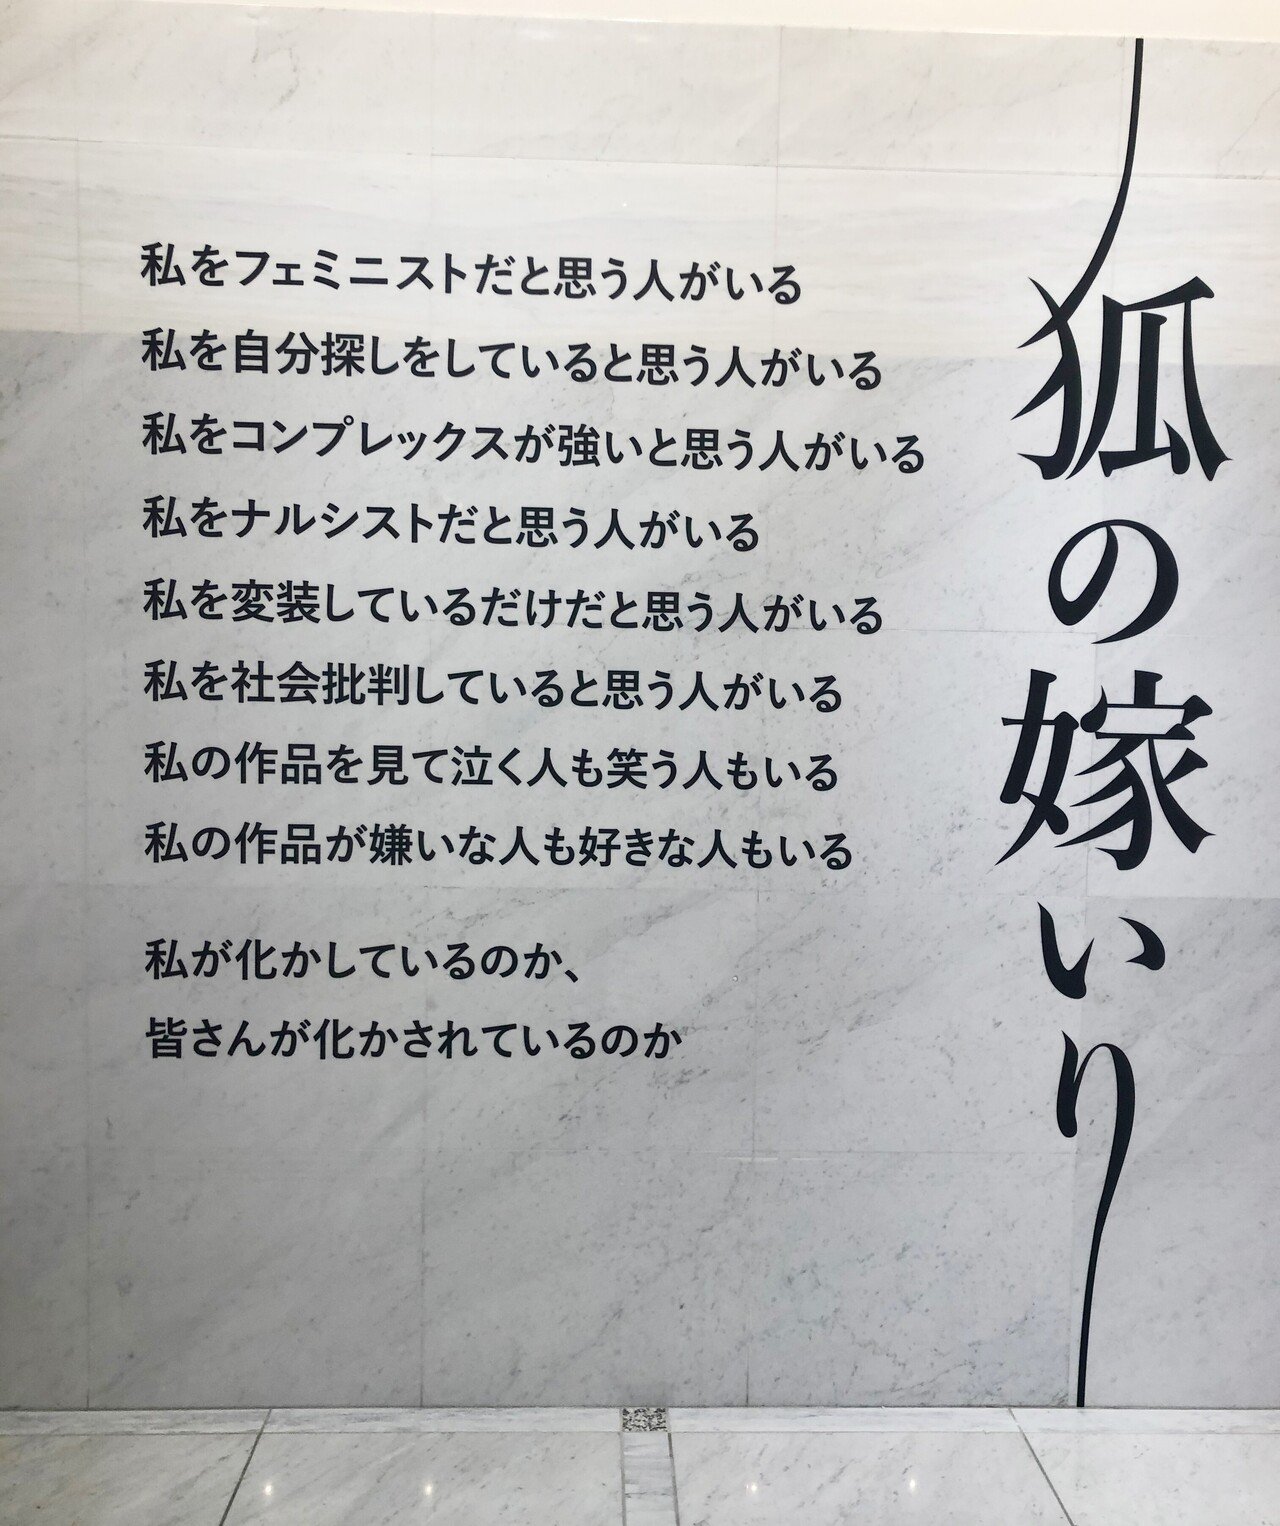 狐の嫁いり
私をフェミニストだと思う人がいる
私を自分探しをしていると思う人がいる
私をコンプレックスが強いと思う人がいる
私をナルシストだと思う人がいる
私を変装しているだけだと思う人がいる
私を社会批判していると思う人がいる
私の作品を見て泣く人も笑う人もいる
私の作品が嫌いな人も好きな人もいる
私が化かしているのか、
皆さんが化かされているのか